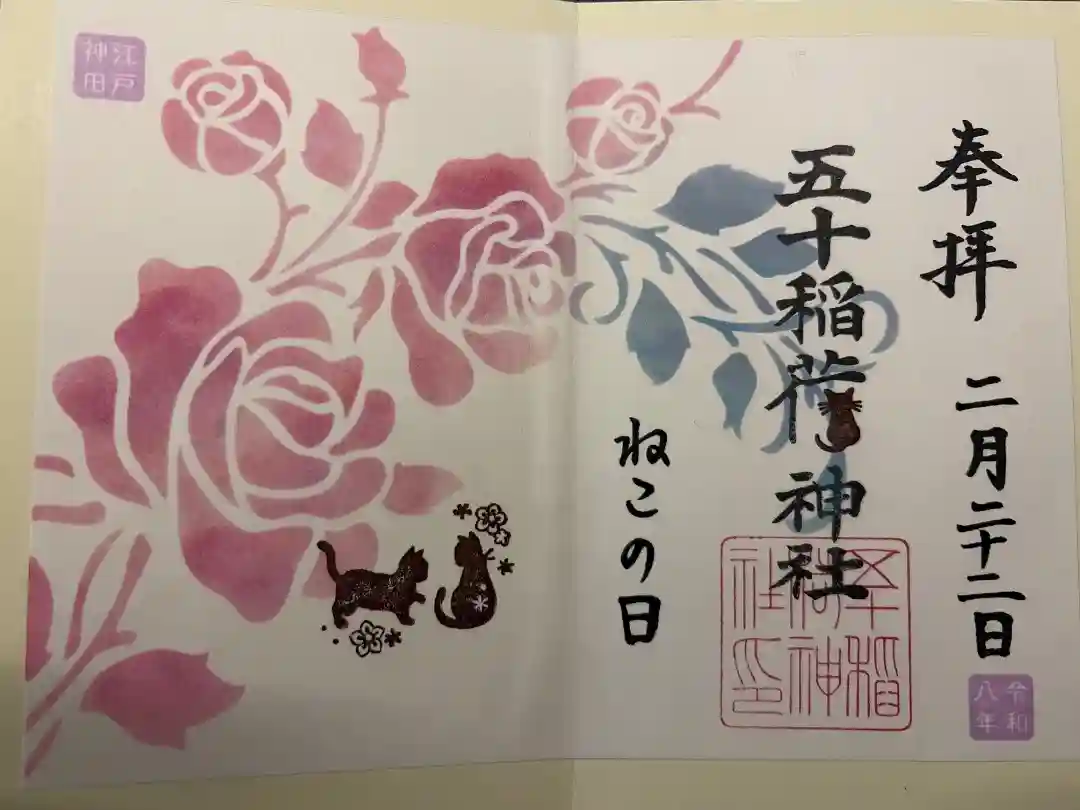 奉拝
二月二十二日
令和
八年
五十稲荷神社
五十稲
荷神
社印
ねこの日
江戸
神田